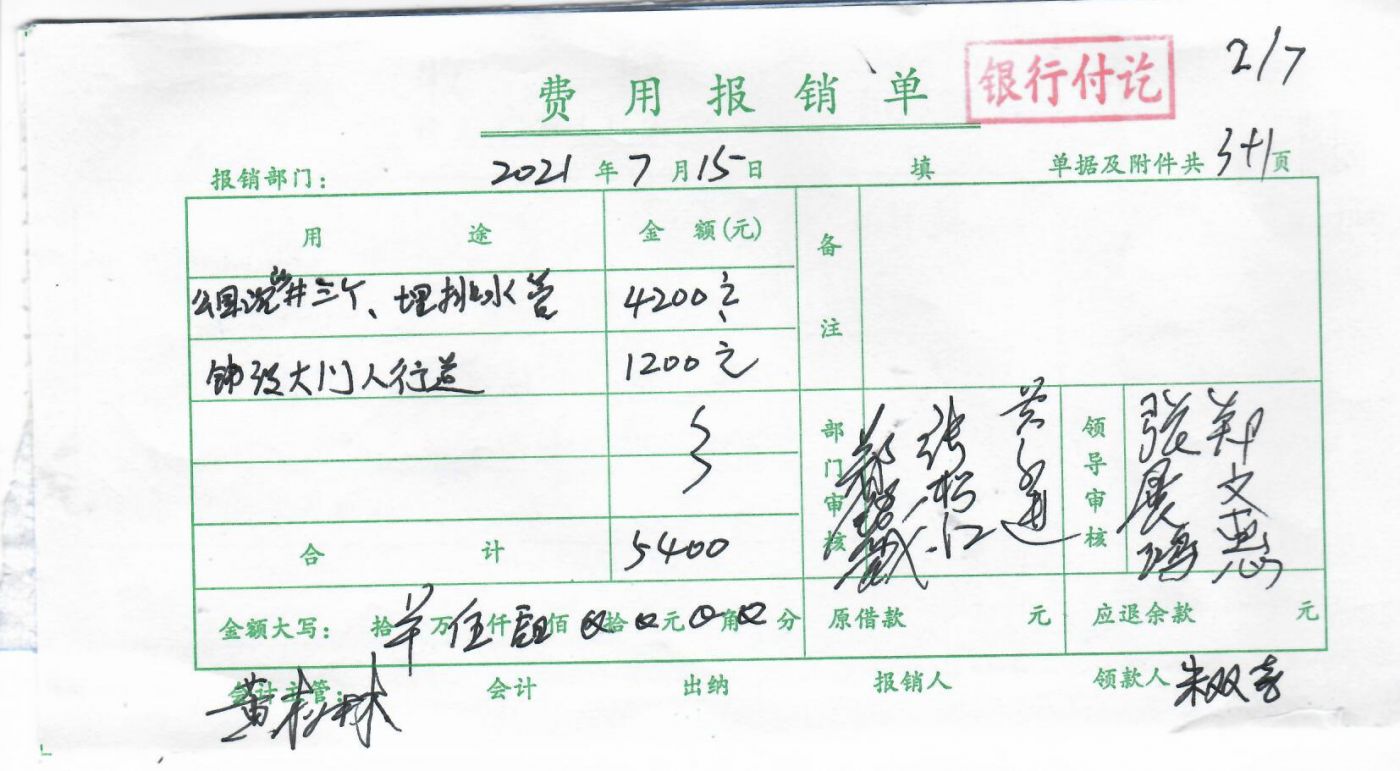 2/7
费用报销单 银行付讫
报销部门： 2021年7月15日 填 单据及附件共3+1页
用途 金额(元) 备注
公园沉沙井三个、埋排水管 4200元
铺设大门人行道 1200元
部门审核 领导审核 张 郑文惠
合计 5400
金额大写： 拾 万伍仟肆佰 拾 元 角 分 原借款 元 应退余款 元
会计主管： 会计 出纳 报销人 领款人 朱双喜
黄 林